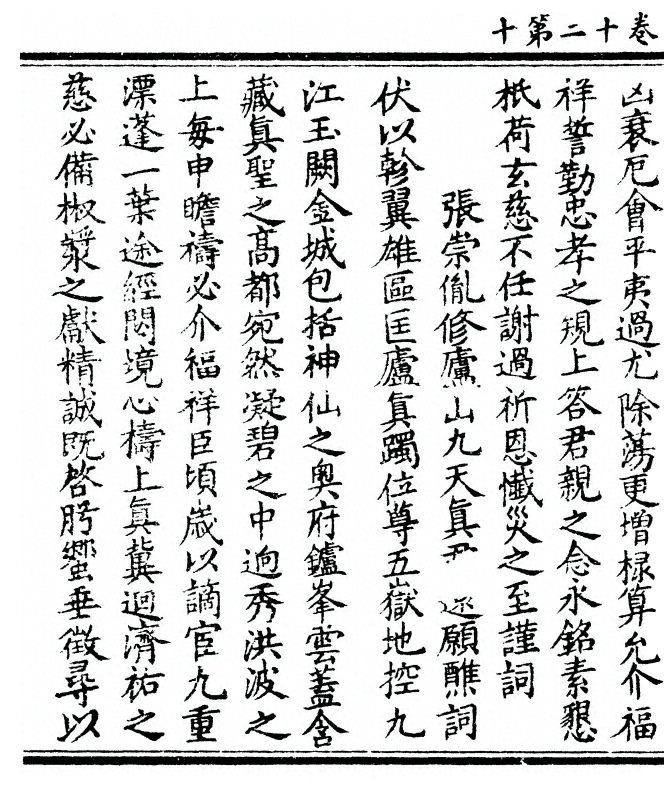 卷十二第十
凶衰厄會平夷過尤除蕩更增祿算允介福
祥誓勤忠孝之規上答君親之念永銘素懇
秖荷玄慈不任謝過祈恩懺災之至謹詞
張崇胤修廬山九天真君還願醮詞
伏以軫翼雄區匡廬真躅位尊五嶽地控九
江玉闕金城包括神仙之奧府鑪峯雲蓋含
藏真聖之高都宛然凝碧之中逈秀洪波之
上每申瞻禱必介福祥臣頃歲以謫官九重
漂蓬一葉途經閟境心禱上真冀迴濟祐之
慈必備椒漿之獻精誠既啓肹蠁垂徵尋以